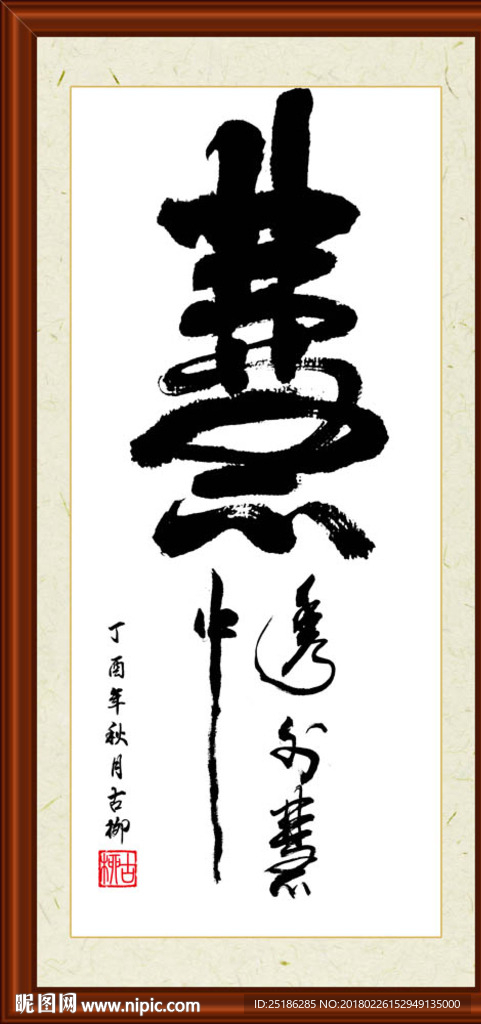 慧
透外慧
中
丁酉年秋月古柳
古柳
昵图网 www.nipic.com
ID:25186285 NO:20180226152949135000